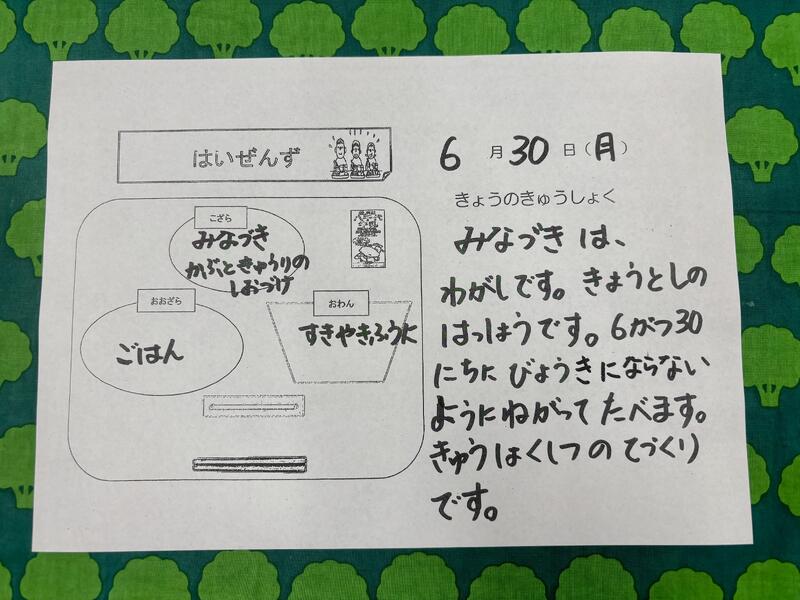 はいぜんず
こざら
みなづき
かぶときゅうりの
しおづけ
おおざら
ごはん
おわん
すきやきふうに
6月30日(月)
きょうのきゅうしょく
みなづきは、
わがしです。きょうとしの
はっしょうです。6がつ30
にちに びょうきにならない
ようにねがって たべます。
きゅうしょくしつの てづくり
です。